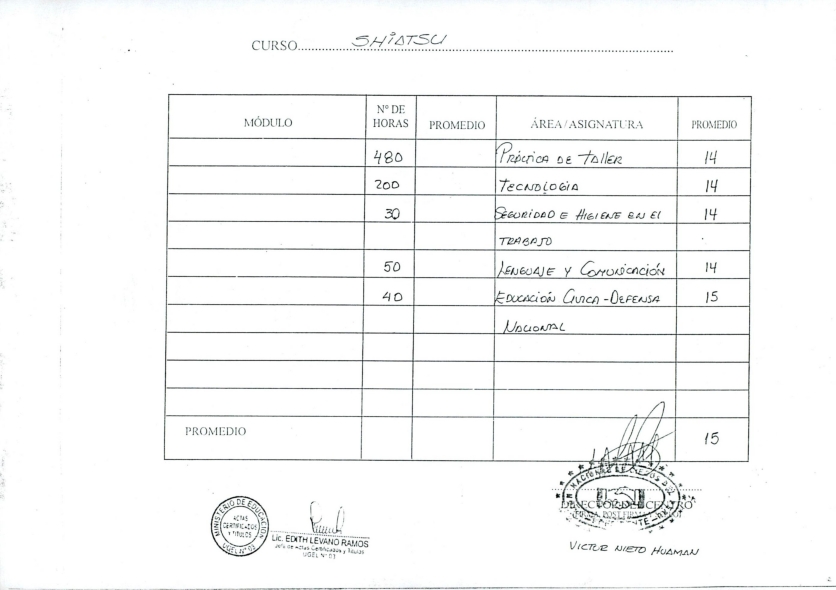 CURSO SHIATSU
MÓDULO Nº DE HORAS PROMEDIO ÁREA/ASIGNATURA PROMEDIO
480 PRÁCTICA DE TALLER 14
200 TECNOLOGIA 14
30 SEGURIDAD E HIGIENE EN EL 14
TRABAJO
50 LENGUAJE Y COMUNICACIÓN 14
40 EDUCACIÓN CIVICA - DEFENSA 15
NACIONAL
PROMEDIO 15
MINISTERIO DE EDUCACIÓN
ACTAS
CERTIFICADOS
Y TITULOS
UGEL Nº 03
Lic. EDITH LEVANO RAMOS
Jefe de Actas Certificados y Titulos
UGEL Nº 03
NACIONAL DE CIEGOS DEL
DIRECTOR DEL CENTRO
VICTOR NIETO HUAMAN